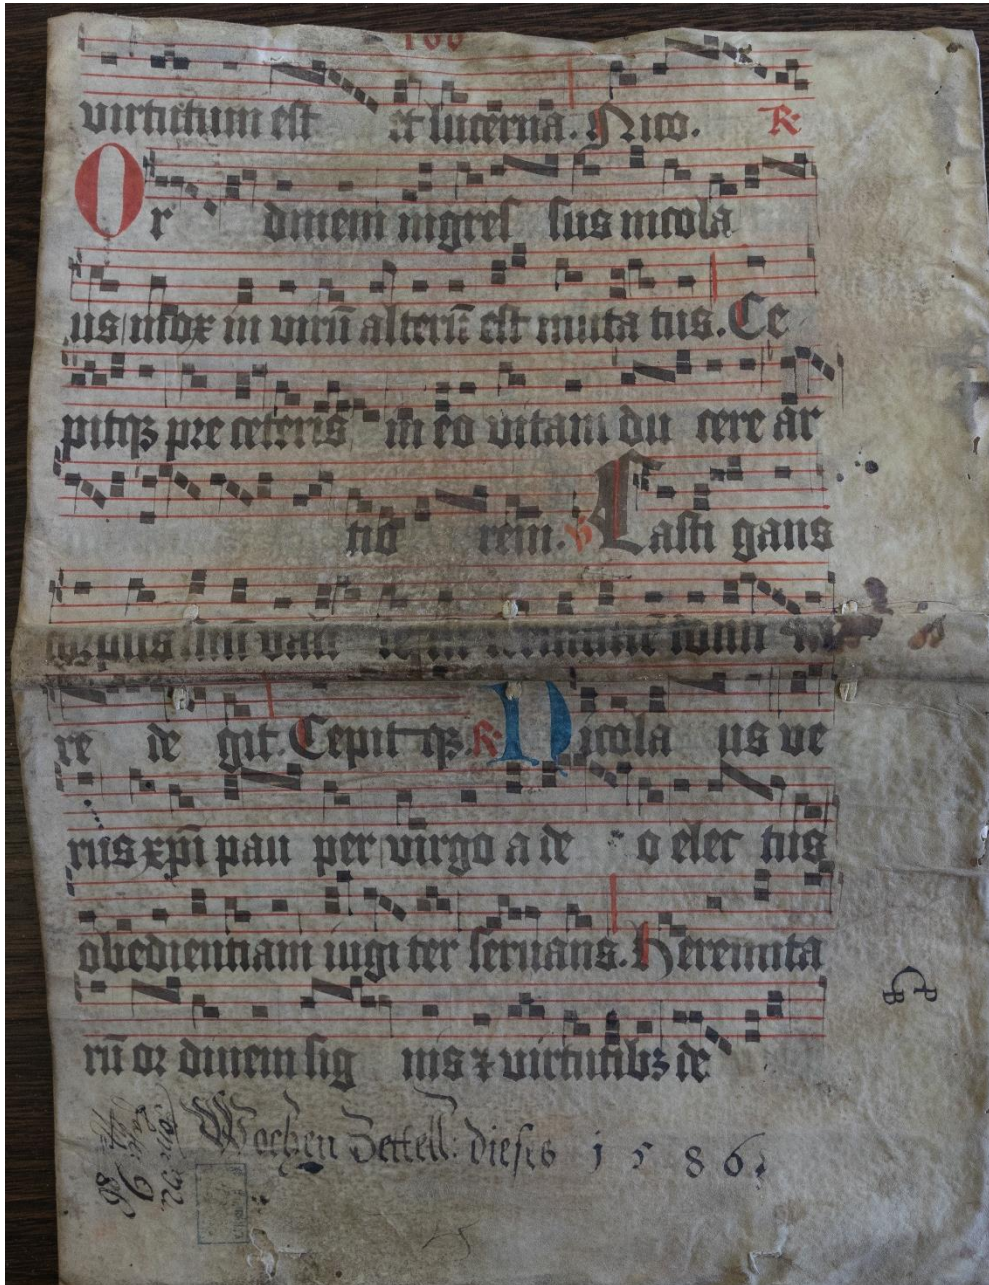 virtutum est et lucerna. Nico. R
Or dinem ingres sus nicola
us mox in virū alterū est muta tus. Ce
pitqꝫ pre ceteris in eo vitam du cere ar
tio rem. V Casti gans
corpus
re de git. Cepit qꝫ. R Nicola us ve
rus xp̄i pau per virgo a de o elec tus
obedientiam iugi ter seruans. Heremita
rū or dinem sig nis ⁊ virtutibꝫ de
Wochen Zettell: dieses 1586.